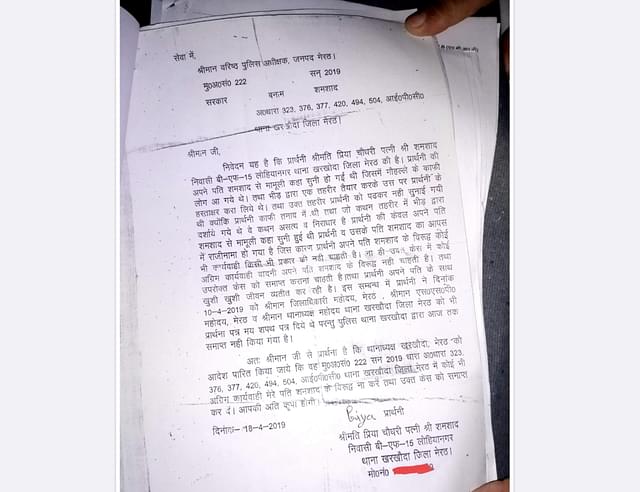 सेवा में,
श्रीमान वरिष्ठ पुलिस अधीक्षक, जनपद मेरठ।
मु0अ0सं0 222 सन् 2019
सरकार बनाम शमशाद
अ0धारा 323, 376, 377, 420, 494, 504, आई0पी0सी0
थाना खरखौदा जिला मेरठ।
श्रीमान जी,
निवेदन यह है कि प्रार्थनी श्रीमति प्रिया चौधरी पत्नी श्री शमशाद
निवासी बी–एफ–15 लोहियानगर थाना खरखोदा जिला मेरठ की है। प्रार्थनी की
अपने पति शमशाद से मामूली कहा सुनी हो गई थी जिसमें मौहल्ले के काफी
लोग आ गये थे। तथा भीड़ द्वारा एक तहरीर तैयार करके उस पर प्रार्थनी के
हस्ताक्षर करा लिये थे। तथा उक्त तहरीर प्रार्थनी को पढकर नही सुनाई गयी
थी क्योंकि प्रार्थनी काफी तनाव में थी तथा जो कथन तहरीर में भीड़ द्वारा
दर्शाये गये थे वे कथन असत्य व निराधार है प्रार्थनी की केवल अपने पति
शमशाद से मामूली कहा सुनी हुई थी प्रार्थनी व उसके पति शमशाद का आपस
में राजीनामा हो गया है जिस कारण प्रार्थनी अपने पति शमशाद के विरूद्ध कोई
भी कार्यवाही किसी भी प्रकार की नही चाहती है। ना ही उक्त केस में कोई
अग्रिम कार्यवाही वादनी अपने पति शमशाद के विरूद्ध नही चाहती है। तथा
उपरोक्त केस को समाप्त कराना चाहती है तथा प्रार्थनी अपने पति के साथ
खुशी खुशी जीवन व्यतीत कर रही है। इस सम्बन्ध में प्रार्थनी ने दिनांक
10-4-2019 को श्रीमान जिलाधिकारी महोदय, मेरठ , श्रीमान एस0एस0पी0
महोदय, मेरठ व श्रीमान थानाध्यक्ष महोदय थाना खरखौदा जिला मेरठ को भी
प्रार्थना पत्र मय शपथ पत्र दिये थे परन्तु पुलिस थाना खरखौदा द्वारा आज तक
समाप्त नही किया गया है।
अतः श्रीमान जी से प्रार्थना है कि थानाध्यक्ष खरखौदा, मेरठ को
आदेश पारित किया जाये कि वह मु0अ0सं0 222 सन 2019 धारा अ0धारा 323,
376, 377, 420, 494, 504, आई0पी0सी0 थाना खरखौदा जिला मेरठ में कोई भी
अग्रिम कार्यवाही मेरे पति शमशाद के विरूद्ध ना करें तथा उक्त केस को समाप्त
कर दें। आपकी अति कृपा होगी।
Priya प्रार्थनी
दिनांक– 18-4-2019
श्रीमति प्रिया चौधरी पत्नी श्री शमशाद
निवासी बी–एफ–15 लोहियानगर
थाना खरखौदा जिला मेरठ।
मो0नं0